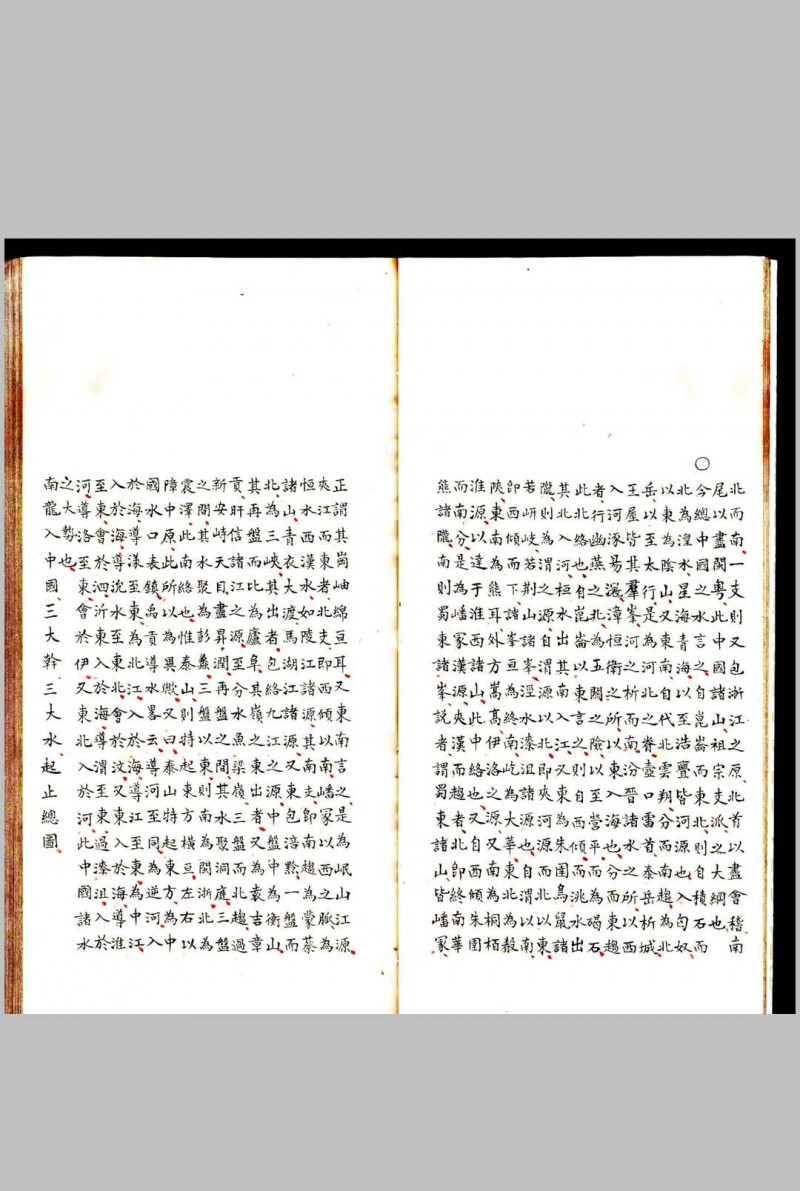 北而南一支則又包浙江之原北首以盡會稽南
尾以盡閩粵此中國諸山祖宗支派之大綱也
今總中國之水言之自崑崙而東北則之積石而
北為湟水星海青海自至浩亹皆河源也入匈奴
以東為陰山又東南之代北雲翔分而南趨為北
岳以至太行是為河北之南壺口雷首泰岳析城
王屋皆其羣峯河之析而脊汾晉諸水之所以西
入河涿易漰漳恒衛之所以東入海也分而東趨
者行幽燕之北為五闕之險以至營平而為碣石
此北絡也自崑崙以東言之則自西傾而洮水出
其北入河桓水出其南入江又東為朱圉鳥鼠諸
隴則為渭之源者渭源以北即夾河源而北以東
若岍岐若荆山諸峯涇水漆沮諸源也自渭以南
即西傾而下諸峯亘為終南屹為大華東為北殽
陝東南為熊耳外方嵩高伊洛之源又南為桐栢
淮源以達于淮西諸山此中絡也又自西傾朱圉
而南分是為嶓冢漢源夾漢而趨者北即終南華
熊諸隴南則蜀東諸峯說者謂蜀東諸山皆嶓冢
正謂其崗岫綿亘耳又東南言之是為岷山江源
夾江而東者北支即西傾以南嶓冢以西之脈為
恒水西漢水如陵江諸源其又東支即南趨為蒙蔡
諸山青衣大渡馬湖江諸源東東包涪黔一盤而
北為三峽其出者包絡九江之源中盤中為衡山
其再盤而比為廬阜其嶺之東出者又為袁吉章
貢盱信諸江之源至分水魚梁嶺三盤北趨過
新安峙天目盡昇潤再盤之間其水聚洞庭三盤
之間其水聚為彭蠡三盤以東則南為閩浙北為
震澤此南絡也惟泰山則特起東方橫亘左右以
障中原此所以為與歟又曰泰山特起東方為中
國水口表鎮禹貢導水畧云導河至同為逆河入
於海導漾至東為北江入於海導江至東為中江
入於海導沇水至東北會於汶又東入於海導淮
至東會於泗沂東入於海導渭至東過漆沮入於
河導洛至東會於伊又東北入於河此中國諸水
之大勢也
南龍入中國三大幹三大水起止總圖